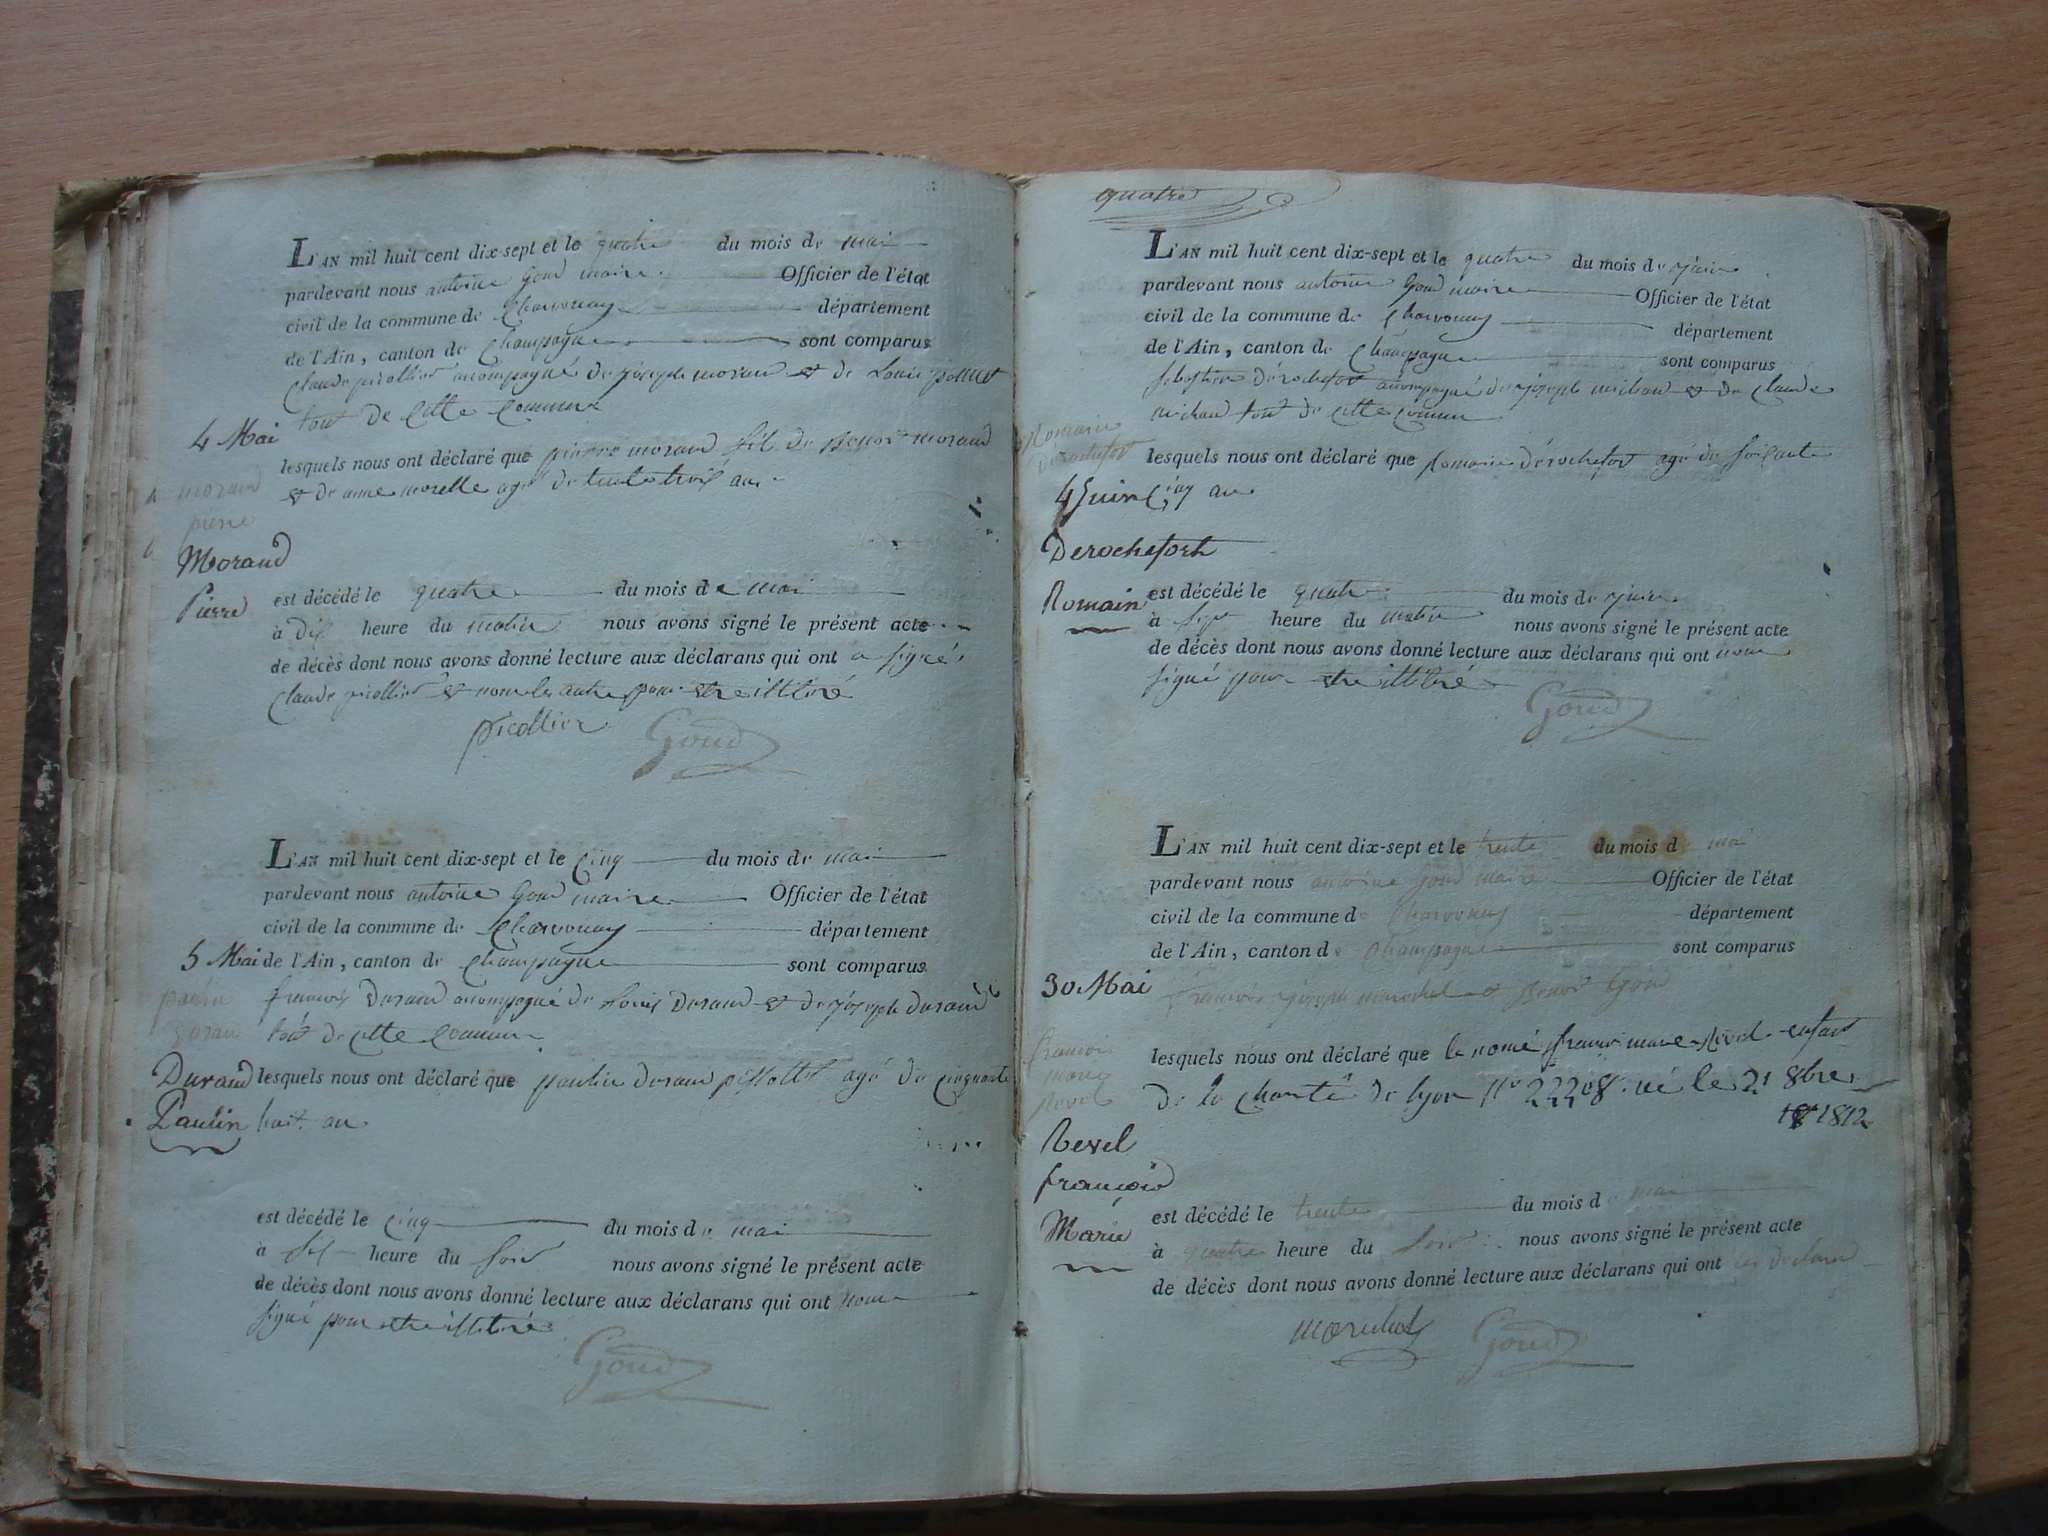 L'AN mil huit cent dix-sept et le quatre du mois de mai
pardevant nous antoine Goud maire Officier de l'état
civil de la commune de Charvonay département
de l'Ain, canton de Champagne sont comparus
Claude picollier acompagné de joseph moran et de Louis
tout de cette commune
4 Mai
lesquels nous ont déclaré que pierre morand fils de morand
et de anne morelle agé de trente trois ans
morand
pierre
Morand
Pierre
est décédé le quatre du mois de mai
à dix heure du matin nous avons signé le présent acte
de décès dont nous avons donné lecture aux déclarans qui ont a signé
Claude picollier et non les autre pour etre illitiré
picollier Goud
L'AN mil huit cent dix-sept et le cinq du mois de mai
pardevant nous antoine Goud maire Officier de l'état
civil de la commune de Charvonay département
5 Mai de l'Ain, canton de Champagne sont comparus
paulin
duran
francois Durand acompagné de Louis Durand et de joseph durand
tout de cette commune
Durand lesquels nous ont déclaré que paulin durand agé de cinquante
Paulin huit an
est décédé le cinq du mois de mai
à heure du soir nous avons signé le présent acte
de décès dont nous avons donné lecture aux déclarans qui ont non
signé pour etre illitiré
Goud
quatre
L'AN mil huit cent dix-sept et le quatre du mois de juin
pardevant nous antoine Goud maire Officier de l'état
civil de la commune de Charvonay département
de l'Ain, canton de Champagne sont comparus
sebastien dérochefort acompagné de joseph michau et de claude
michau tout de cette comune
Romain
derochefort
lesquels nous ont déclaré que Romain dérochefort agé de soixante
4 Juin cinq an
Derochefort
Romain
est décédé le quatre du mois de juin
à sept heure du matin nous avons signé le présent acte
de décès dont nous avons donné lecture aux déclarans qui ont non
signé pour etre illitiré
Goud
L'AN mil huit cent dix-sept et le trente du mois de mai
pardevant nous antoine Goud maire Officier de l'état
civil de la commune de Charvonay département
de l'Ain, canton de Champagne sont comparus
30 Mai
francois joseph marechal et Goud
francoi
marie
Revel
lesquels nous ont déclaré que le nomé francoi marie Revel enfant
de la charité de lyon n° 22208 né le 21 8bre
1812
Revel
françois
Marie
est décédé le trente du mois de mai
à quatre heure du soir nous avons signé le présent acte
de décès dont nous avons donné lecture aux déclarans qui ont
marechal Goud